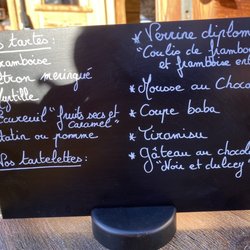 tartes :
framboise
citron meringué
myrtille
Écureuil "fruits secs et
caramel"
tatin ou pomme
Nos tartelettes :
* Verrine diplom
"Coulis de frambo
et framboise ent
* Mousse au Choco
* Coupe baba
* Tiramisu
* Gâteau au chocola
"Noix et dulcey"